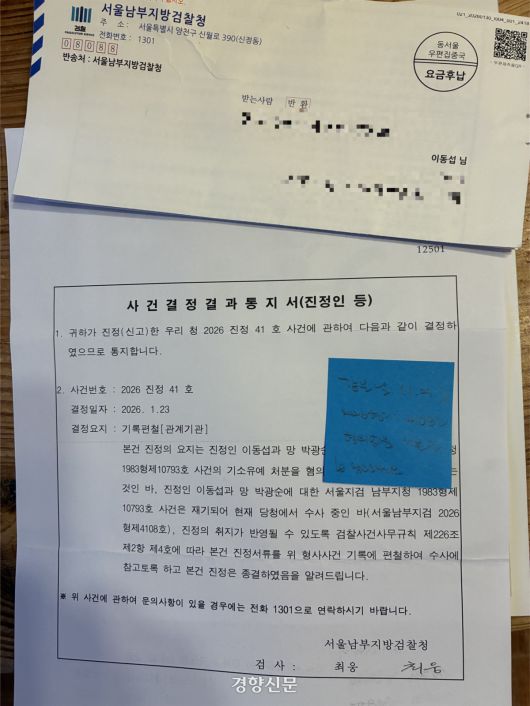 검찰
서울남부지방검찰청
주 소 : 서울특별시 양천구 신월로 390(신정동)
전화번호 : 1301
08088
반송처 : 서울남부지방검찰청
동서울
우편집중국
요금후납
받는사람 반 환
이동섭 님
12501
사 건 결 정 결 과 통 지 서(진정인 등)
1. 귀하가 진정(신고)한 우리 청 2026 진정 41 호 사건에 관하여 다음과 같이 결정하
였으므로 통지합니다.
2. 사건번호 : 2026 진정 41 호
결정일자 : 2026. 1.23
결정요지 : 기록편철[관계기관]
본건 진정의 요지는 진정인 이동섭과 망 박광순
1983형제10793호 사건의 기소유예 처분을 혐의
것인 바, 진정인 이동섭과 망 박광순에 대한 서울지검 남부지청 1983형제
10793호 사건은 재기되어 현재 당청에서 수사 중인 바(서울남부지검 2026
형제4108호), 진정의 취지가 반영될 수 있도록 검찰사건사무규칙 제226조
제2항 제4호에 따라 본건 진정서류를 위 형사사건 기록에 편철하여 수사에
참고토록 하고 본건 진정은 종결하였음을 알려드립니다.
※ 위 사건에 관하여 문의사항이 있을 경우에는 전화 1301으로 연락하시기 바랍니다.
서울남부지방검찰청
검 사 : 최웅 최웅
경향신문